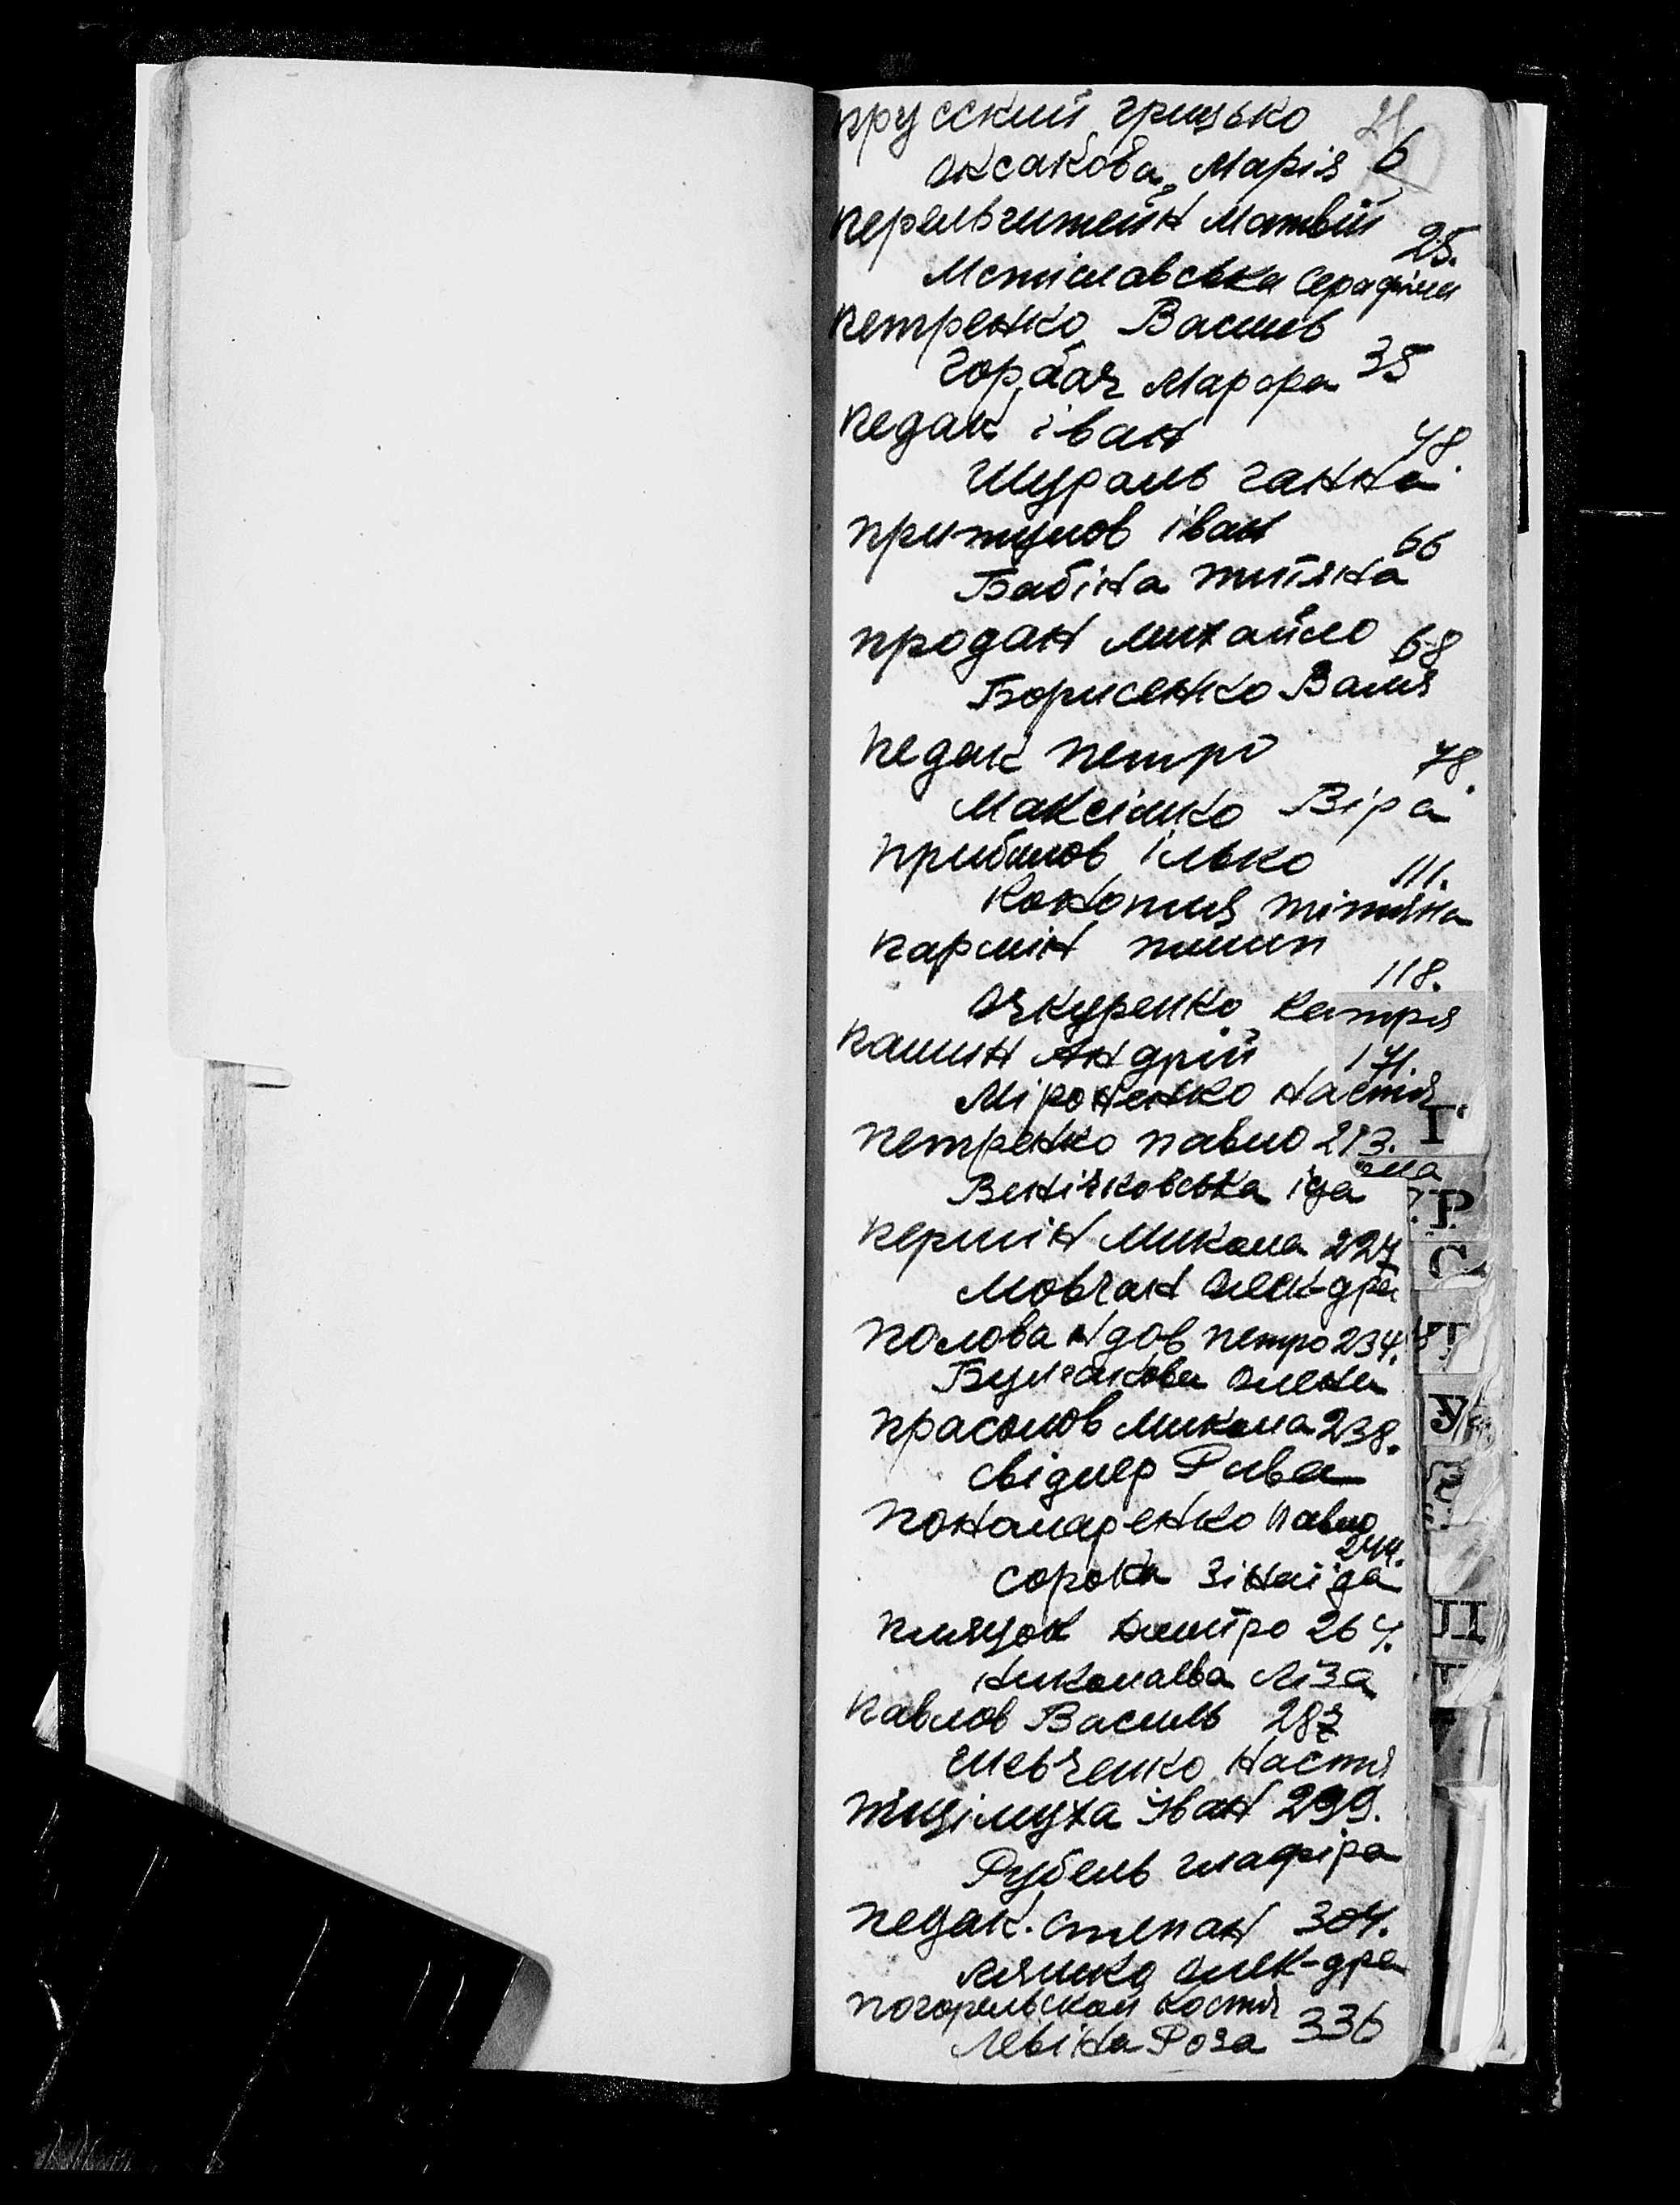 прусский гришько
Аксакова Марія 6
перельгитейн Матвій 25.
Мстиславська Серафіма
петренко Василь
Горбач Марфа 35
педак іван 48.
Шураль ганна
притулов іван 66
Бабіна титяна
продан михайло 68
Борисенко Валя
педак петро 78.
Максімко Віра
прибилов ілько 111.
Конотия тітяна
пармін пилип 118.
Очкуренко Катря
пашин Андрій 171.
Міроненко настя
петренко павло 213.
Винічковська іда
першін Микола 227
Мовчан Олек-дра
половандов петро 234.
Булгакова Олена
прасолов Микола 238.
свідлер Рива
понамаренко павло
244.
сорока Зінаїда
Дмитро 264.
николаєва Ліза
павлов Василь 287
Шевченко настя
іван 299.
Рубель глафіра
педак. степан 304.
ляшко Олек-дра
погорельскай костя 336
Левіна Роза
Р
С
Т
У